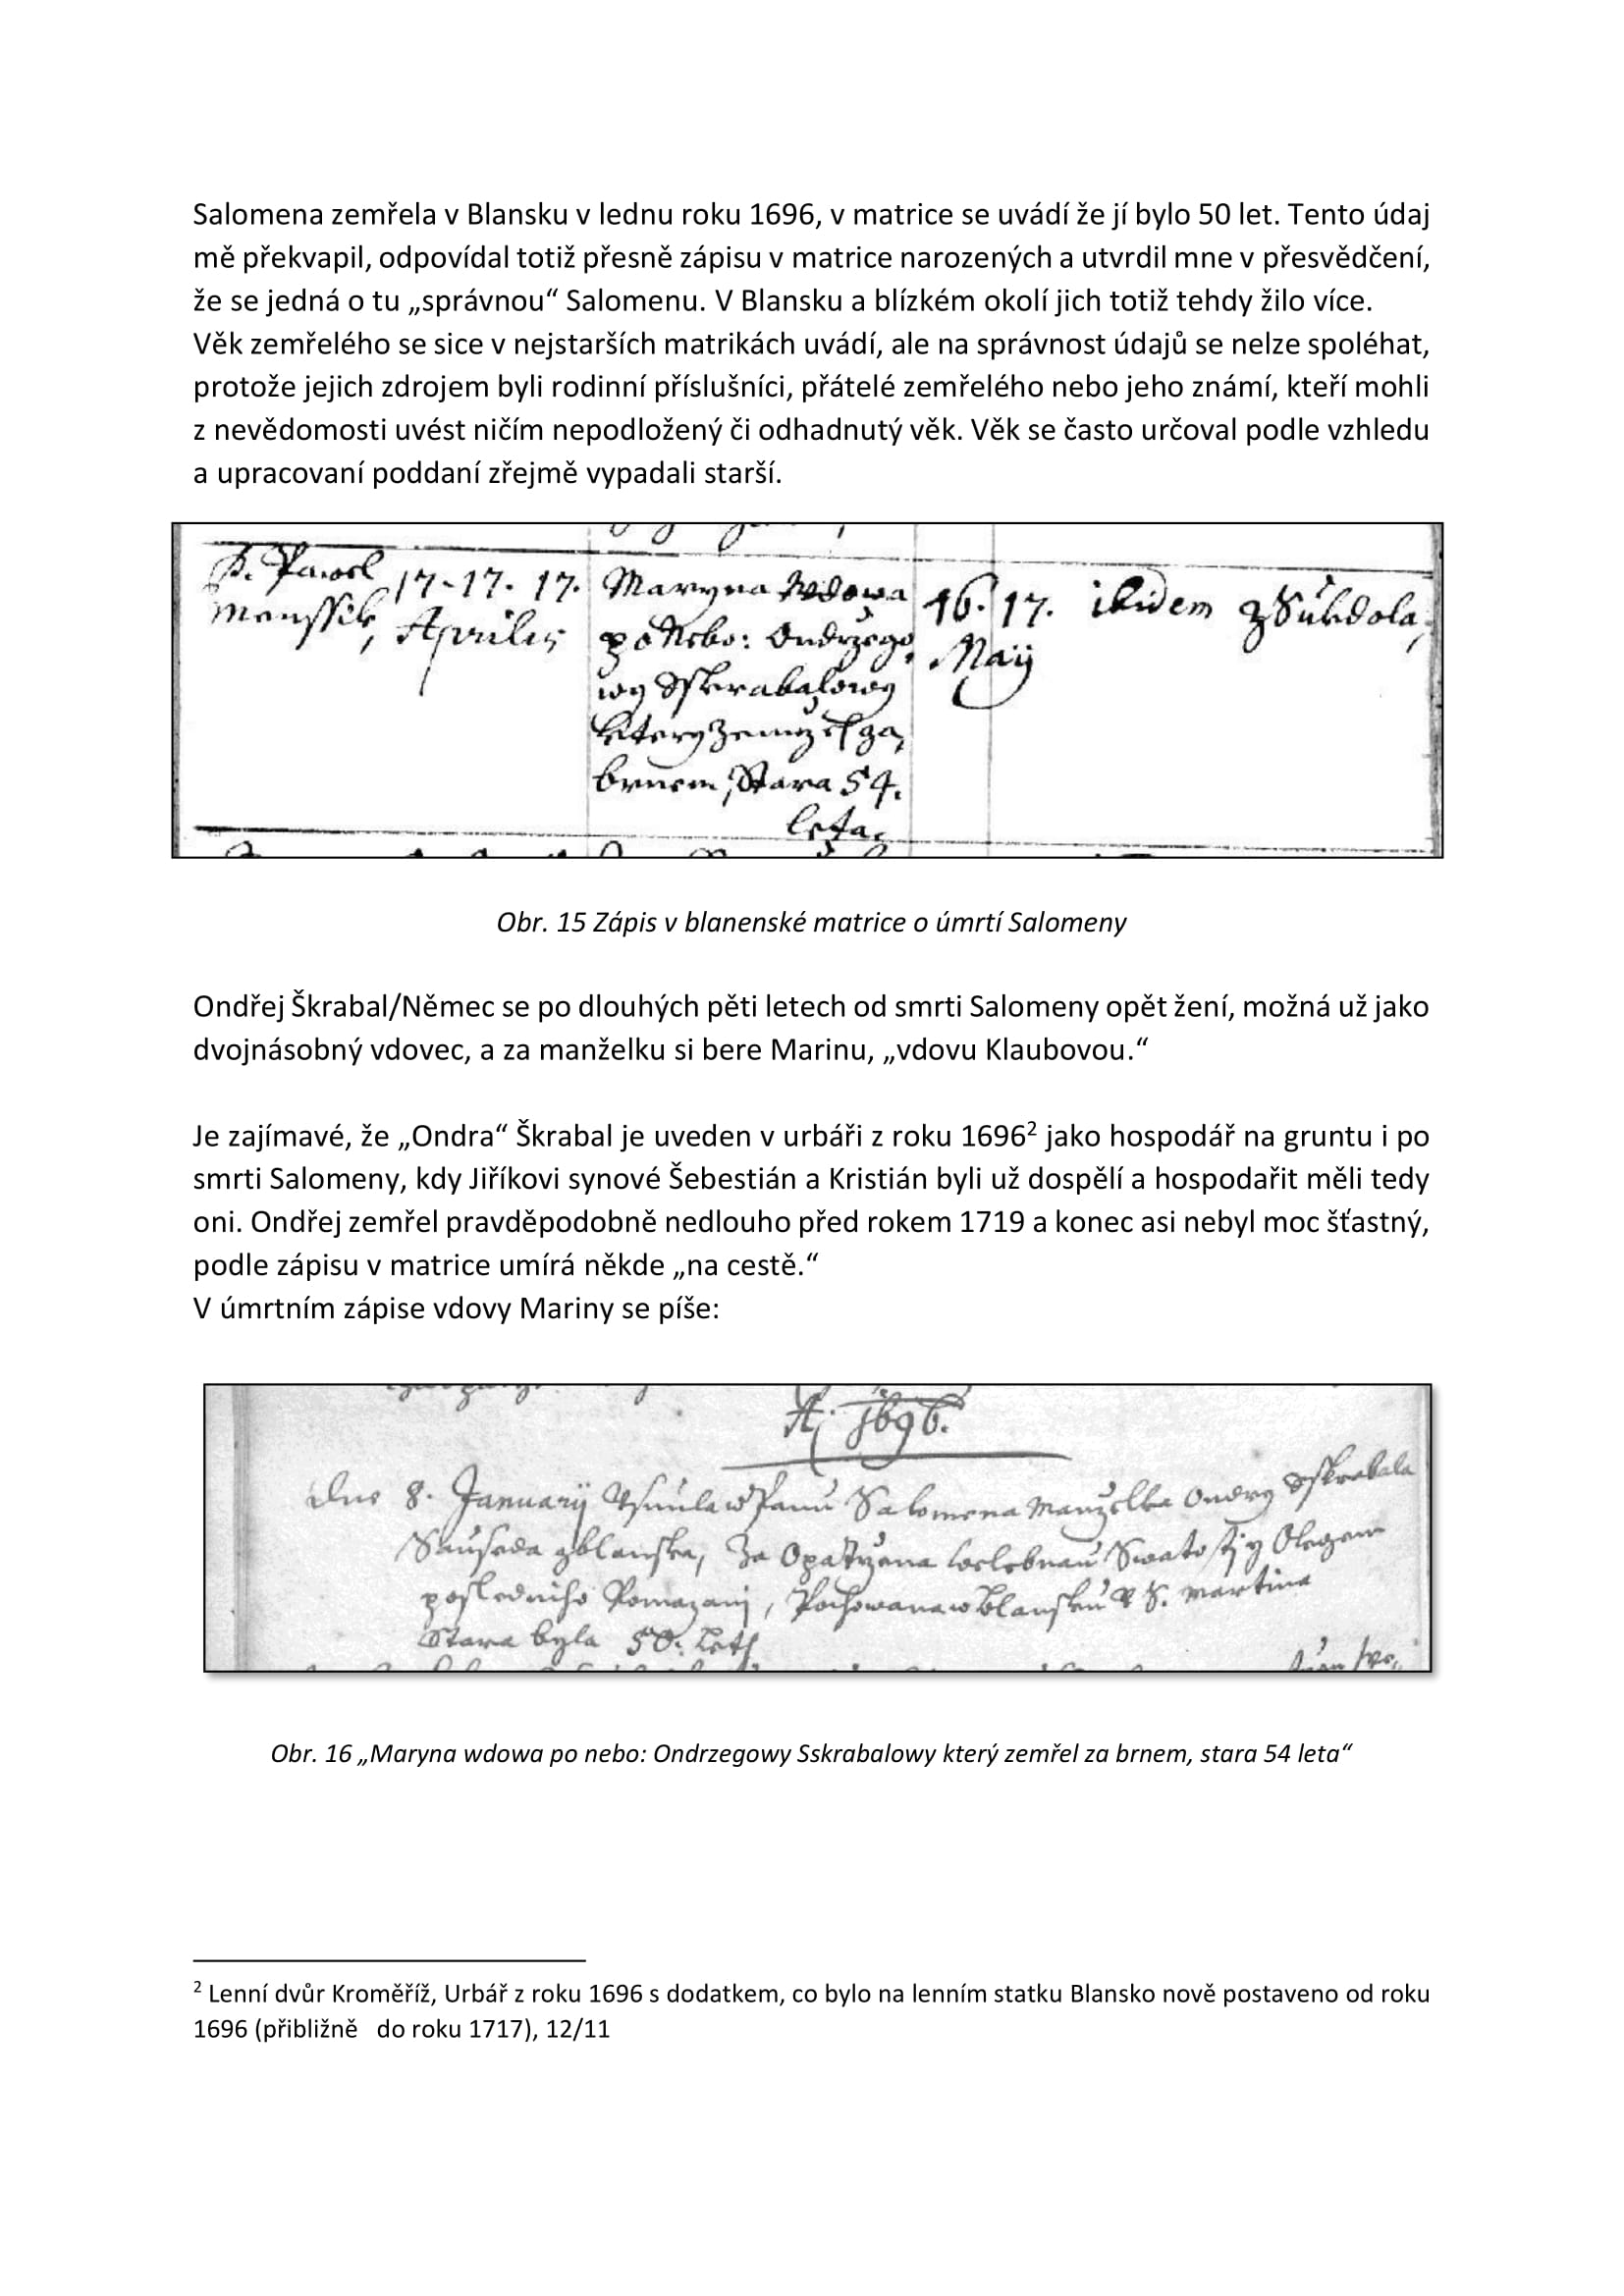 Salomena zemřela v Blansku v lednu roku 1696, v matrice se uvádí že jí bylo 50 let. Tento údaj
mě překvapil, odpovídal totiž přesně zápisu v matrice narozených a utvrdil mne v přesvědčení,
že se jedná o tu „správnou“ Salomenu. V Blansku a blízkém okolí jich totiž tehdy žilo více.
Věk zemřelého se sice v nejstarších matrikách uvádí, ale na správnost údajů se nelze spoléhat,
protože jejich zdrojem byli rodinní příslušníci, přátelé zemřelého nebo jeho známí, kteří mohli
z nevědomosti uvést ničím nepodložený či odhadnutý věk. Věk se často určoval podle vzhledu
a upracovaní poddaní zřejmě vypadali starší.
P. Pawel 17-17. 17. Maryna wdowa 16. 17. ibidem z Suchdola,
Aprilis po Nebo: Ondrzego Maij
wy Sskrabalowy
ktery zemrzel za
brnem, Stara 54.
leta.
Obr. 15 Zápis v blanenské matrice o úmrtí Salomeny
Ondřej Škrabal/Němec se po dlouhých pěti letech od smrti Salomeny opět žení, možná už jako
dvojnásobný vdovec, a za manželku si bere Marinu, „vdovu Klaubovou.“
Je zajímavé, že „Ondra“ Škrabal je uveden v urbáři z roku 1696² jako hospodář na gruntu i po
smrti Salomeny, kdy Jiříkovi synové Šebestián a Kristián byli už dospělí a hospodařit měli tedy
oni. Ondřej zemřel pravděpodobně nedlouho před rokem 1719 a konec asi nebyl moc šťastný,
podle zápisu v matrice umírá někde „na cestě.“
V úmrtním zápise vdovy Mariny se píše:
A. 1696.
Dne 8. Januarij Usnula w Panu Salomena Manzelka Ondry Sskrabala
Sauseda z blanska, Za Opatrzena welebnau Swatosti y Olegem
posledniho Pomazani, Pochowana w blansku U S. Martina
Stara byla 50. Leth
Obr. 16 „Maryna wdowa po nebo: Ondrzegowy Sskrabalowy který zemřel za brnem, stara 54 leta“
² Lenní dvůr Kroměříž, Urbář z roku 1696 s dodatkem, co bylo na lenním statku Blansko nově postaveno od roku
1696 (přibližně do roku 1717), 12/11